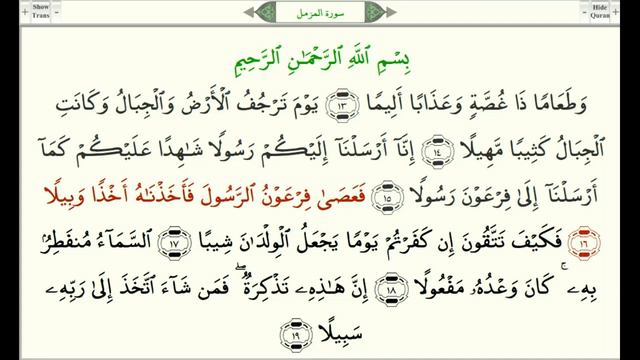 + Show Trans -
سورة المزمل
- Hide Quran +
بِسْمِ ٱللَّهِ ٱلرَّحْمَـٰنِ ٱلرَّحِيمِ
وَطَعَامًا ذَا غُصَّةٍ وَعَذَابًا أَلِيمًا ١٣ يَوْمَ تَرْجُفُ ٱلْأَرْضُ وَٱلْجِبَالُ وَكَانَتِ
ٱلْجِبَالُ كَثِيبًا مَّهِيلًا ١٤ إِنَّآ أَرْسَلْنَآ إِلَيْكُمْ رَسُولًا شَـٰهِدًا عَلَيْكُمْ كَمَآ
أَرْسَلْنَآ إِلَىٰ فِرْعَوْنَ رَسُولًا ١٥ فَعَصَىٰ فِرْعَوْنُ ٱلرَّسُولَ فَأَخَذْنَـٰهُ أَخْذًا وَبِيلًا
١٦ فَكَيْفَ تَتَّقُونَ إِن كَفَرْتُمْ يَوْمًا يَجْعَلُ ٱلْوِلْدَٰنَ شِيبًا ١٧ ٱلسَّمَآءُ مُنفَطِرٌۢ
بِهِۦ ۚ كَانَ وَعْدُهُۥ مَفْعُولًا ١٨ إِنَّ هَـٰذِهِۦ تَذْكِرَةٌ ۖ فَمَن شَآءَ ٱتَّخَذَ إِلَىٰ رَبِّهِۦ
سَبِيلًا ١٩